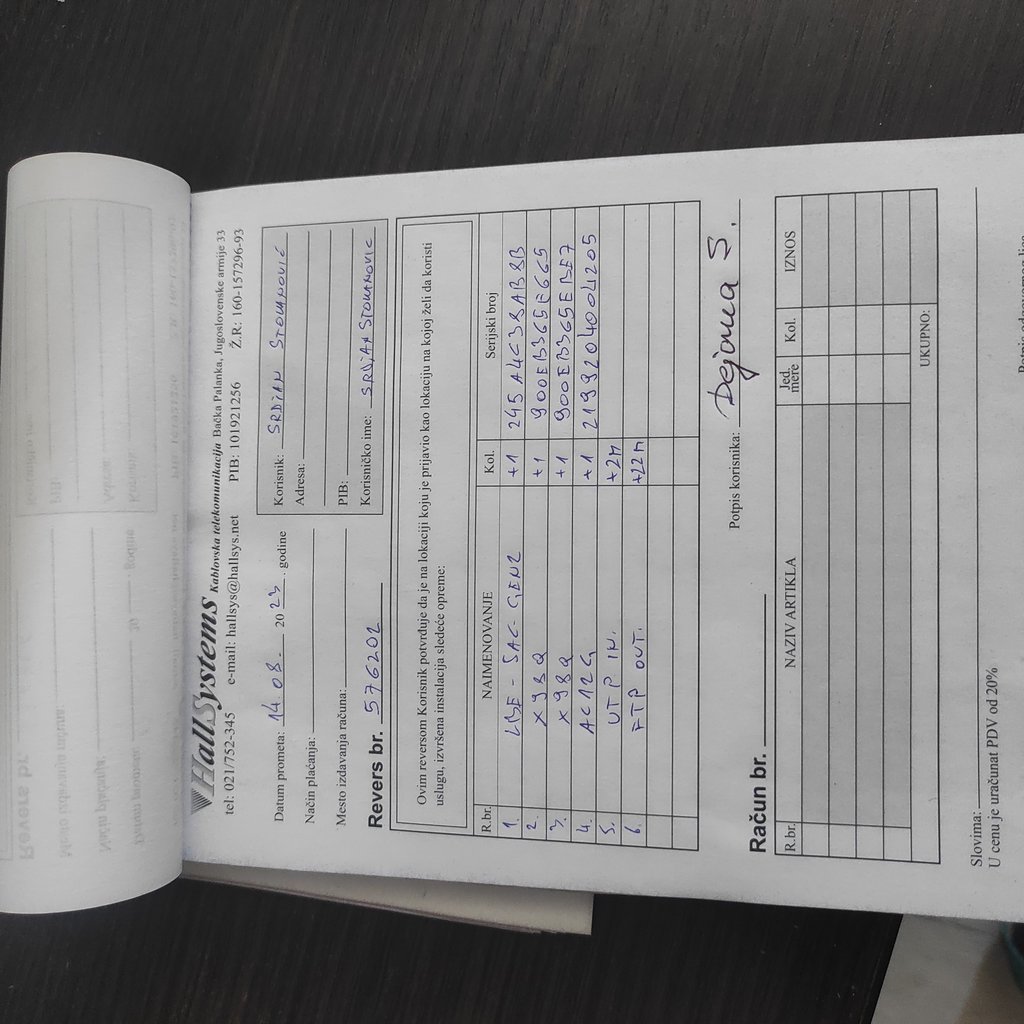 HallSystems Kablovska telekomunikacija Bačka Palanka, Jugoslovenske armije 33
tel: 021/752-345 e-mail: hallsys@hallsys.net PIB: 101921256 Ž.R: 160-157296-93
Datum prometa: 14.08. 2023. godine
Način plaćanja:
Mesto izdavanja računa:
Revers br. 576202
Korisnik: SRDJAN STOJANOVIĆ
Adresa:
PIB:
Korisničko ime: SRDJAN STOJANOVIC
Ovim reversom Korisnik potvrđuje da je na lokaciji koju je prijavio kao lokaciju na kojoj želi da koristi
uslugu, izvršena instalacija sledeće opreme:
R.br. NAIMENOVANJE Kol. Serijski broj
1. LBE-5AC GEN2 +1 245A4C38AB8B
2. X98Q +1 900EB365E665
3. X98Q +1 900EB365EBE7
4. AC12G +1 2199204004205
5. UTP IN. +2m
6. FTP OUT. +22m
Potpis korisnika: Dejana S.
Račun br.
R.br. NAZIV ARTIKLA Jed. mere Kol. IZNOS
UKUPNO:
Slovima:
U cenu je uračunat PDV od 20%